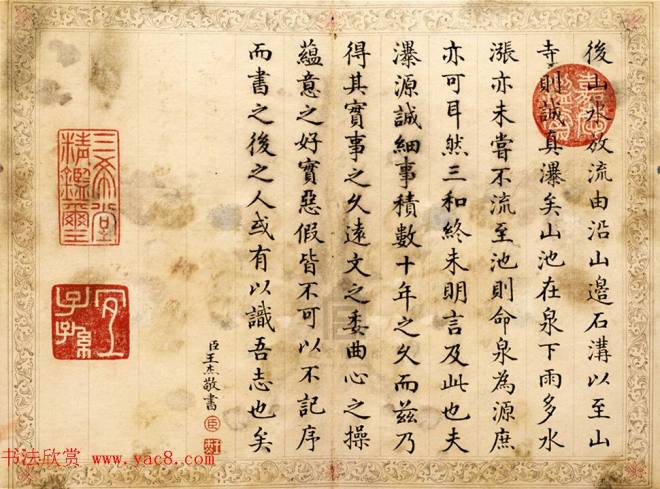 後山水放流由沿山邊石溝以至山
寺則誠真瀑矣山池在泉下雨多水
漲亦未嘗不流至池則命泉為源庶
亦可耳然三和終未明言及此也夫
瀑源誠細事積數十年之久而茲乃
得其實事之久遠文之委曲心之操
蘊意之好實惡假皆不可以不記序
而書之後之人或有以識吾志也矣
臣王杰敬書
臣
三希堂
精鑑璽
宜
子孫
书法欣赏 www.yac8.com